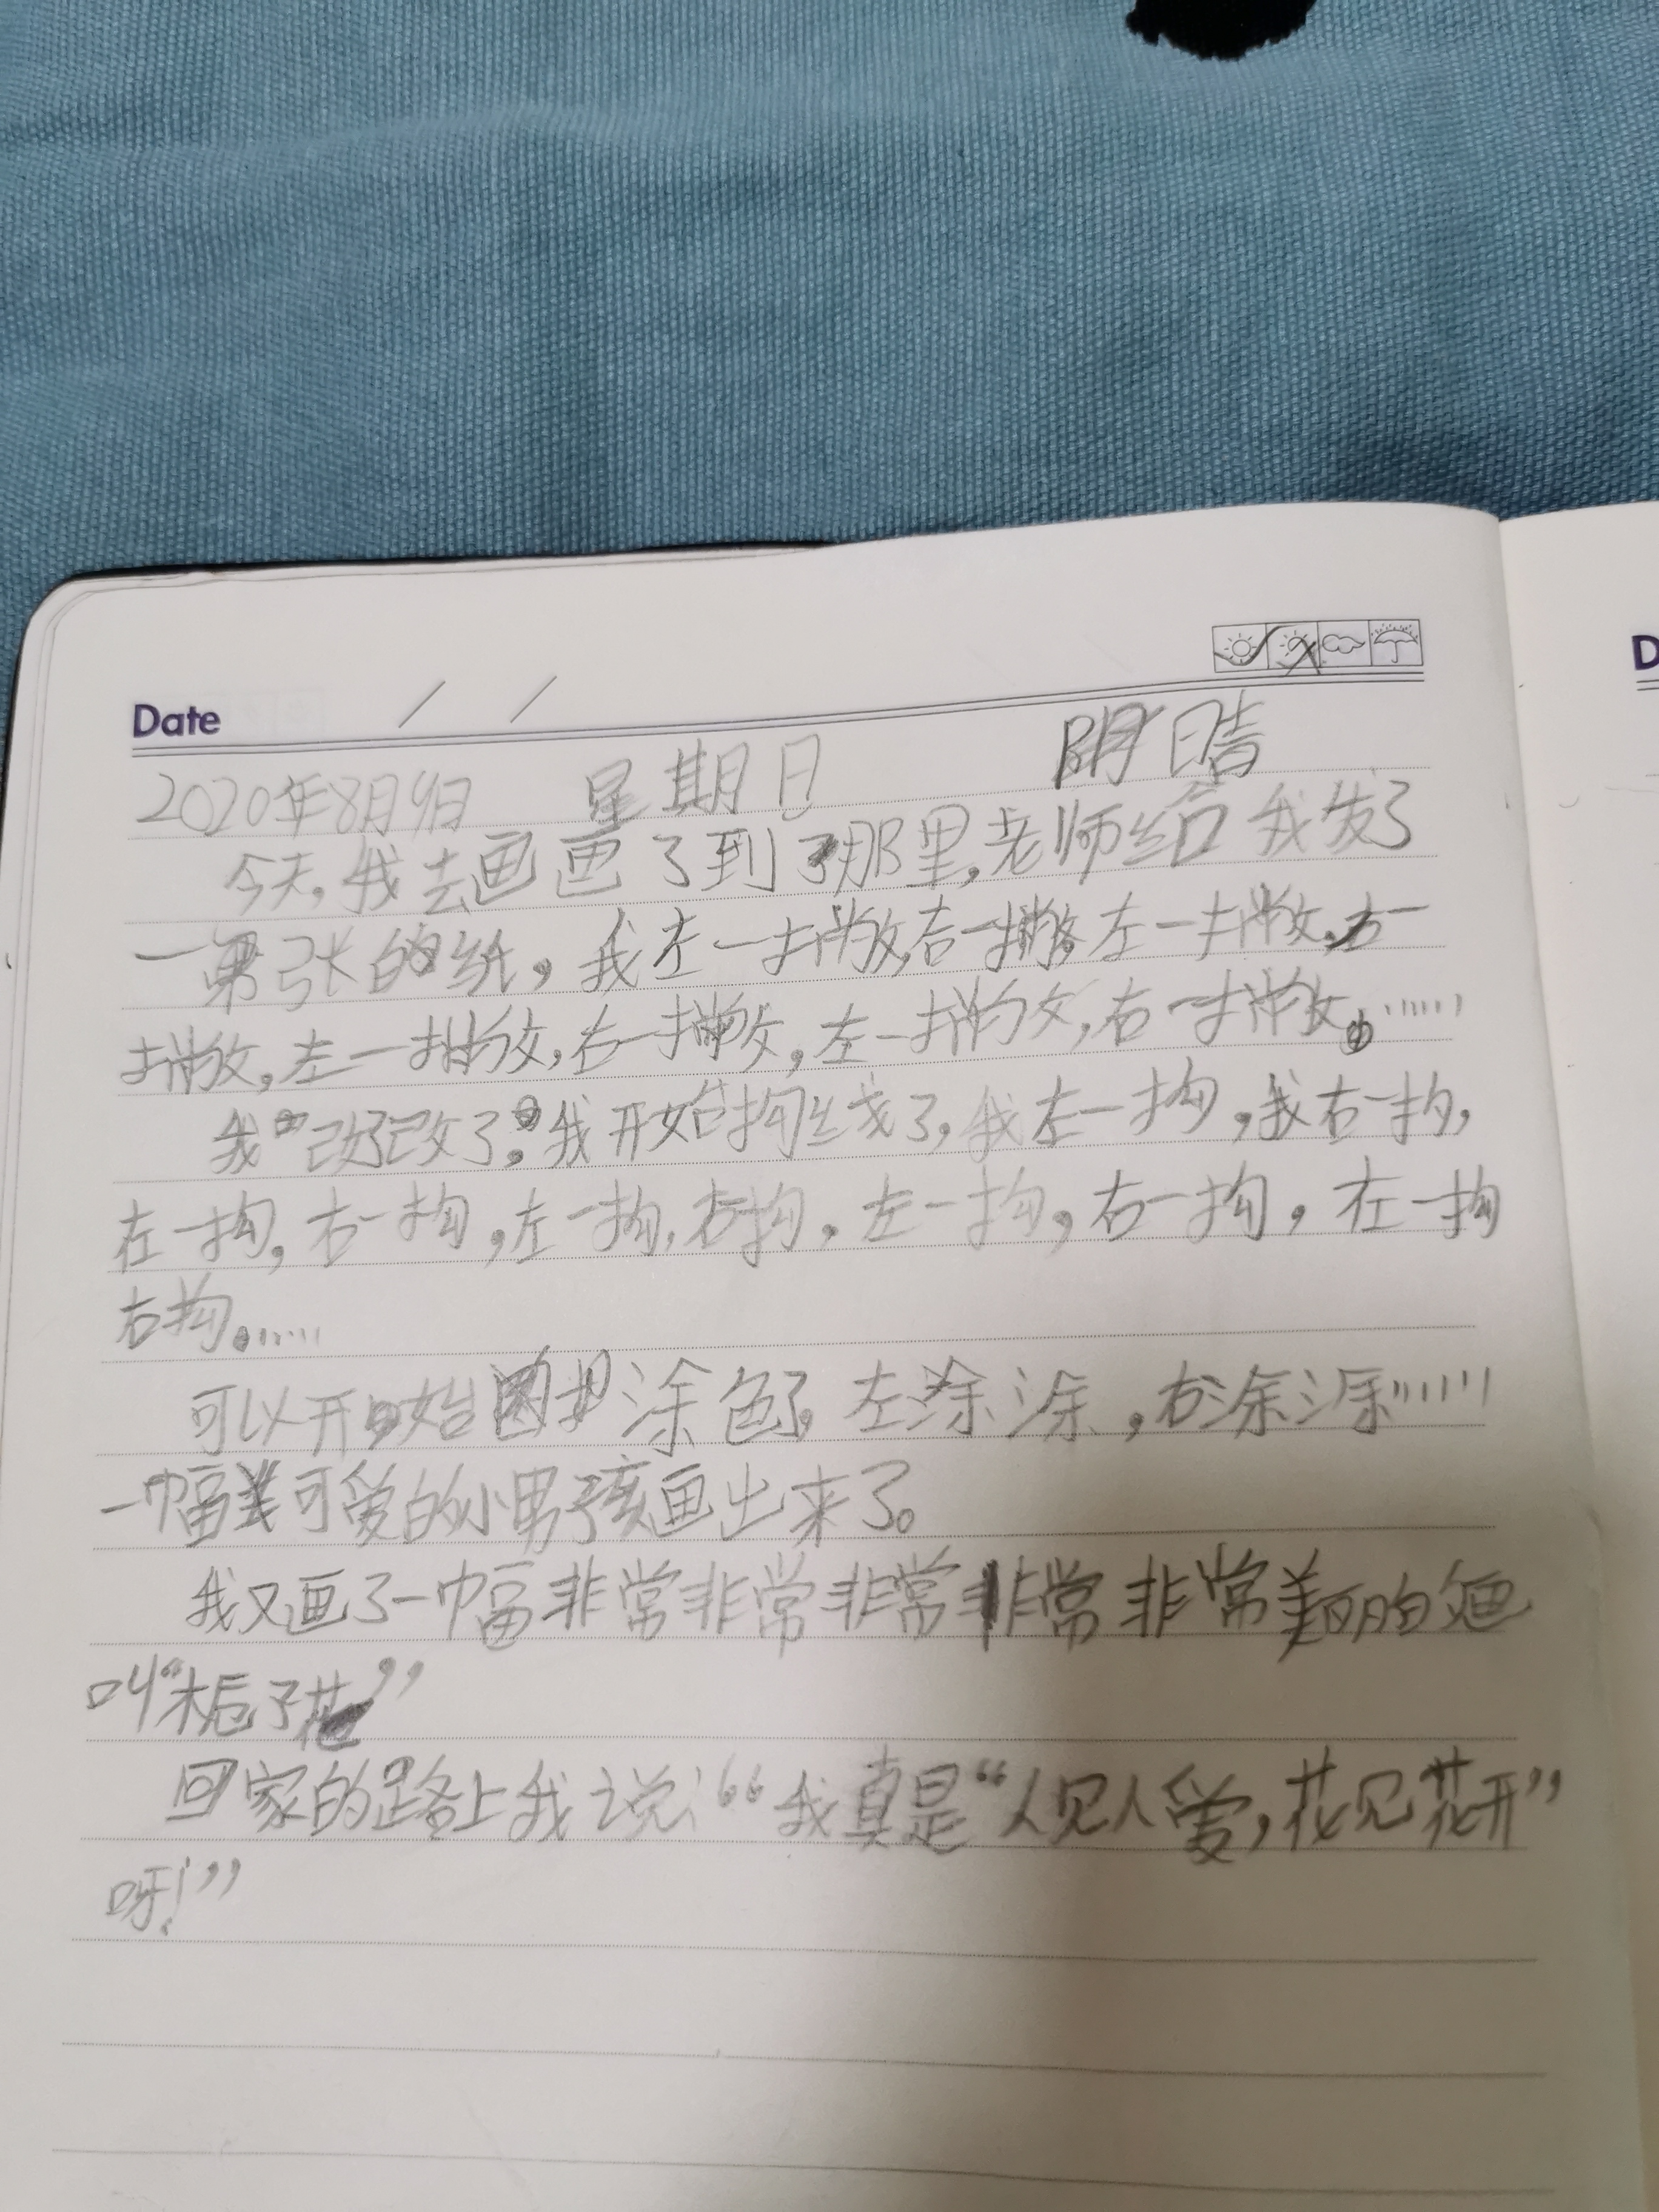 Date / /
2020年8月9日 星期日 阴 晴
今天,我去画画了到了那里,老师给我发了
一张的纸,我左一撇,右一撇,左一撇,右一
撇,左一撇,右一撇,左一撇,右一撇。……
我改好了。我开始拘线了,我左一拘,我右一拘,
左一拘,右一拘,左一拘,右拘,左一拘,右一拘,在一拘
右拘。……
可以开始涂色了,左涂涂,右涂涂……
一幅可爱的小男孩画出来了。
我又画了一幅非常非常非常非常非常美丽的画
叫“栀子花”
回家的路上我说:“我真是“人见人爱,花见花开”
呀!”
D